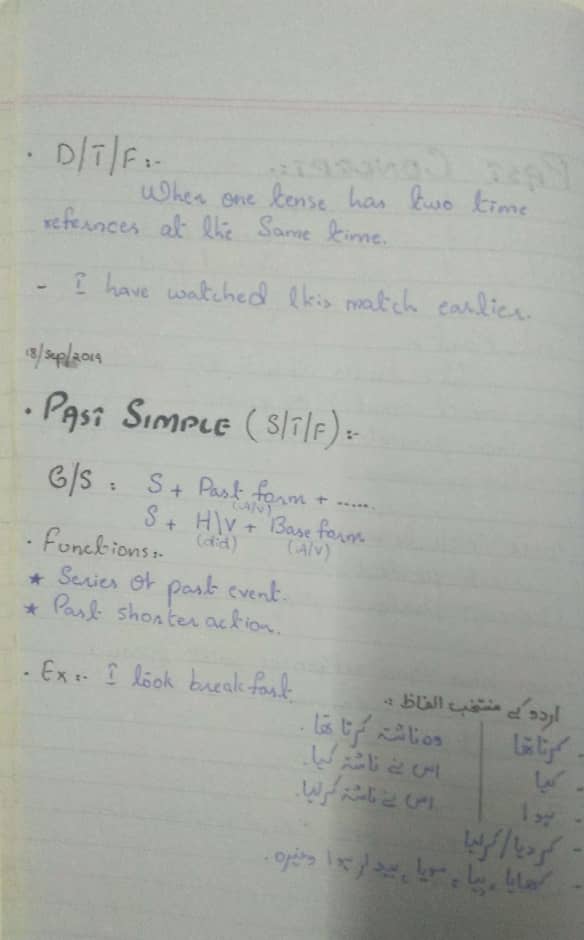 · D/T/F:-
When one tense has two time
refernces at the Same time.
- I have watched this match earlier.
18/Sep/2019
· PAST SIMPLE (S/T/F):-
G/S : S + Past form + .....
(A/V)
S + H\V + Base form
(did) (A/V)
· Functions:-
★ Series of past event.
★ Past shorter action.
· Ex:- I took breakfast.
اردو کے منتخب الفاظ :-
- کرتا تھا | وہ ناشتہ کرتا تھا۔
- کیا | اس نے ناشتہ کیا۔
- ہوا | اس نے ناشتہ کرلیا۔
- کردیا/کرلیا
- کھایا، پیا، سویا، بیدار ہوا وغیرہ۔